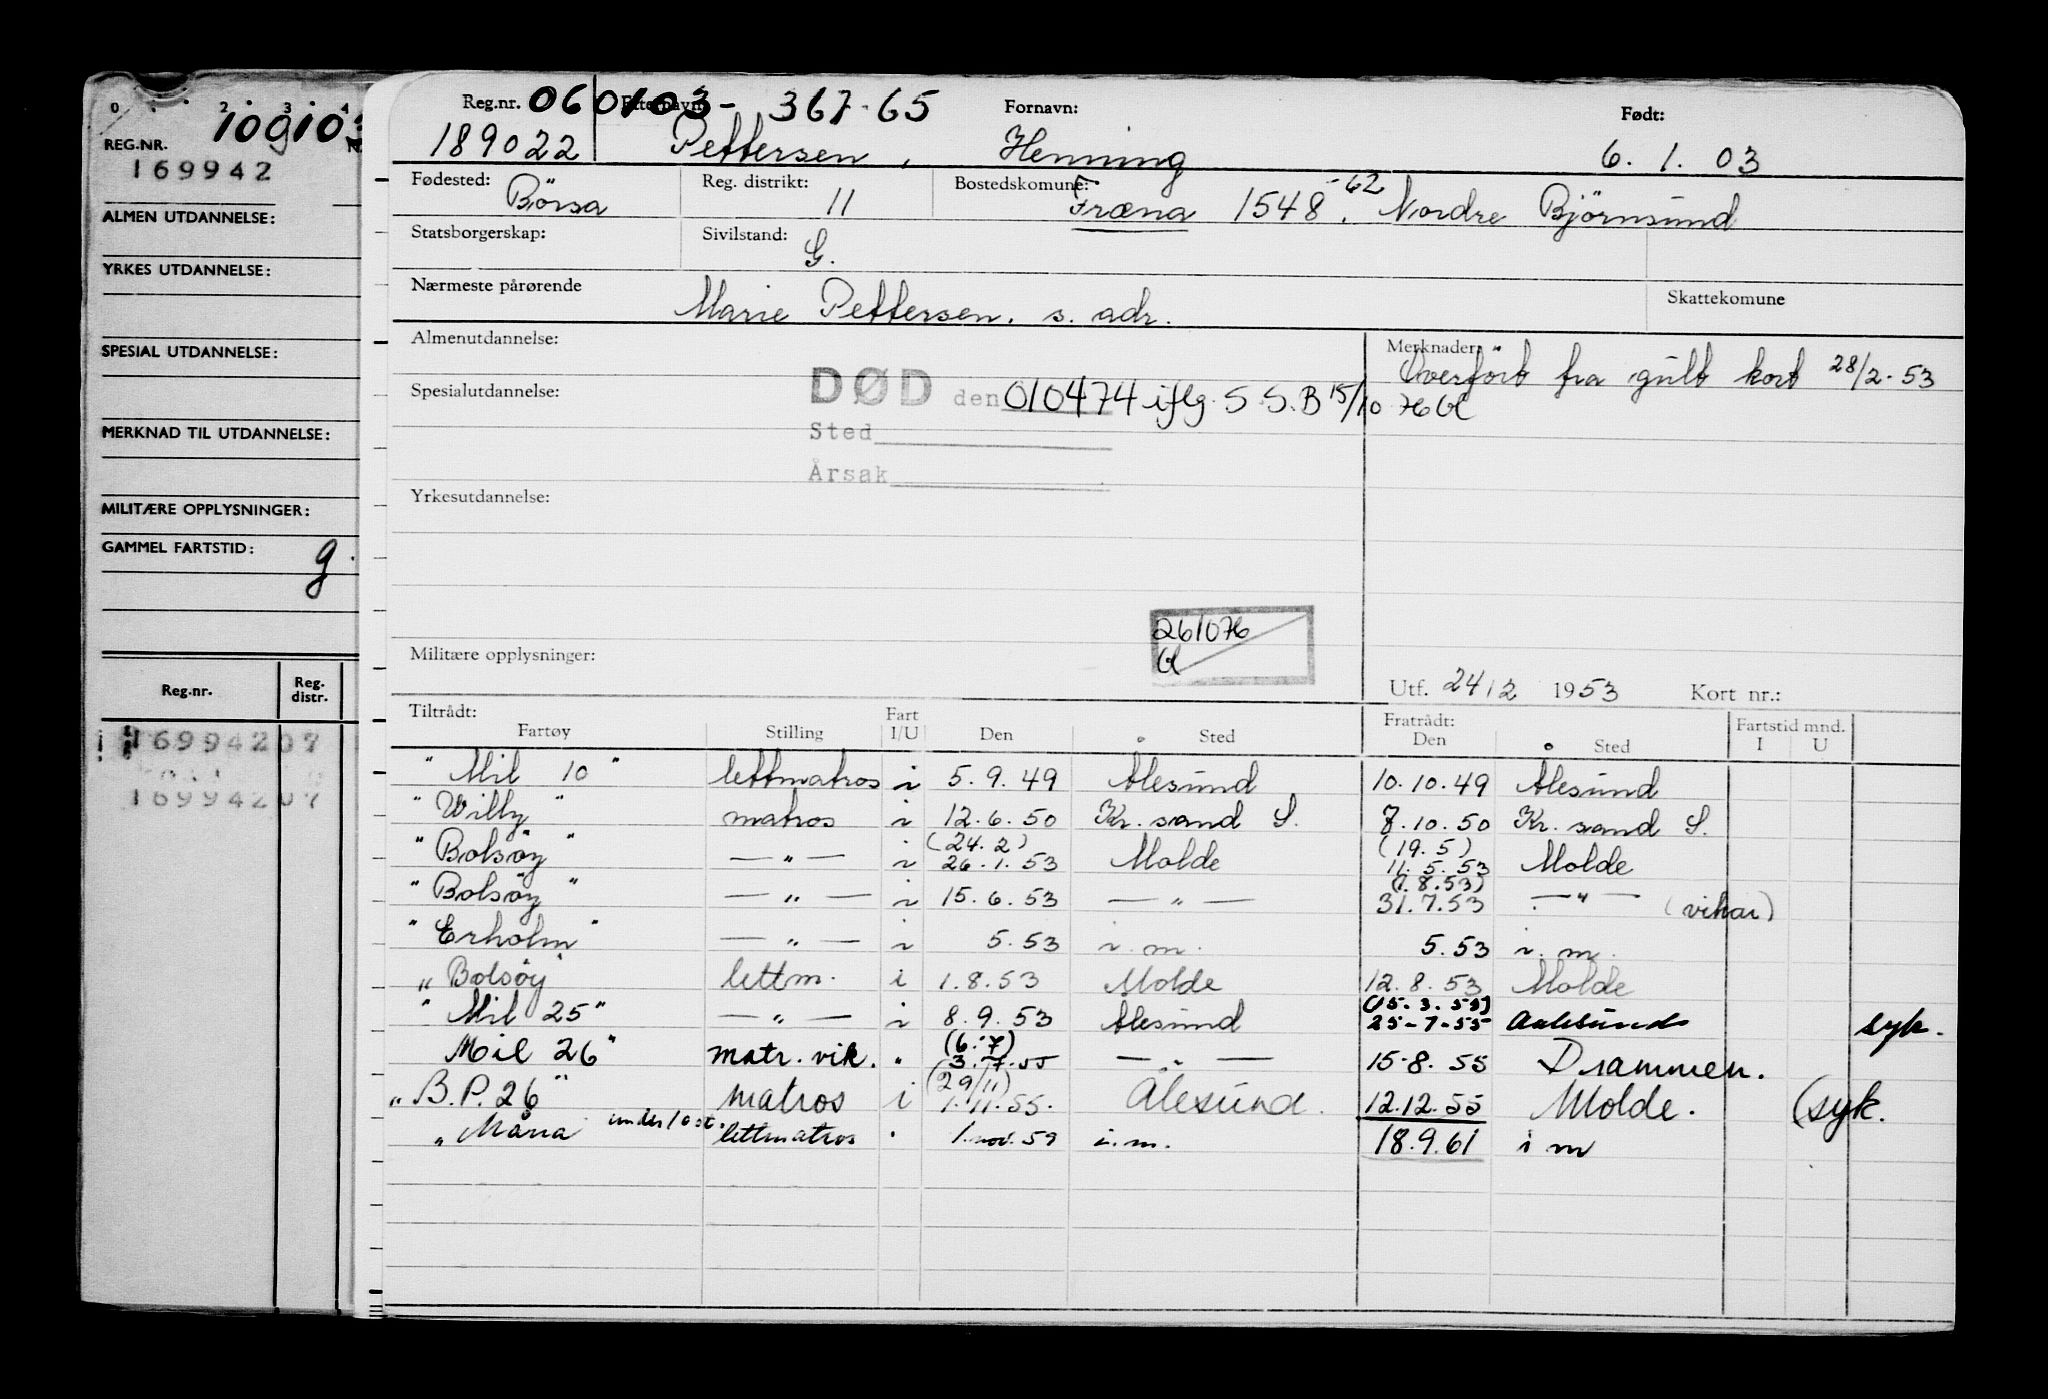 0 2 3 4
REG.NR. 100103
169942
ALMEN UTDANNELSE:
YRKES UTDANNELSE:
SPESIAL UTDANNELSE:
MERKNAD TIL UTDANNELSE:
MILITÆRE OPPLYSNINGER:
GAMMEL FARTSTID: g.
Reg.nr. Reg. distr.
16994207
16994207
Reg.nr. 060103-367-65 Etternavn: Fornavn: Født:
189022 Pettersen, Henning 6. 1. 03
Fødested: Börsa Reg. distrikt: 11 Bostedskomune: Fræna 1548 -62. Nordre Björnsund
Statsborgerskap: Sivilstand: G.
Nærmeste pårørende Marie Pettersen. s. adr. Skattekomune
Almenutdannelse: Merknader: Overfört fra gult kort 28/2-53
Spesialutdannelse: DØD den 010474 iflg. S.S.B 15/10 76 Gl
Sted
Årsak
Yrkesutdannelse:
261076
Gl
Militære opplysninger:
Utf. 24/2 1953 Kort nr.:
Tiltrådt: Fratrådt: Fartstid mnd.
Fartøy Stilling Fart I/U Den Sted Den Sted I U
"Mil 10" lettmatros i 5.9.49 Ålesund 10.10.49 Ålesund
"Willy" matros i 12.6.50 Kr. sand S. 7.10.50 Kr. sand S.
"Bolsöy" — " — i (24.2) 26.1.53 Molde (19.5) 11.5.53 Molde
"Bolsöy" — " — i 15.6.53 — " — (1.8.53) 31.7.53 — " — (vikar)
"Erholm" — " — i 5.53 i.m. 5.53 i.m.
"Bolsöy" lettm. i 1.8.53 Molde 12.8.53 Molde
"Mil 25" — " — i 8.9.53 Ålesund (15.3.59) 25-7-55 Aalesund syk.
Mil 26" matr. vik. " (6.7) 3.7.55 — " — 15-8.55 Drammen.
"B.P. 26" matros i (29/11) 1.11.55. Ålesund. 12.12.55 Molde. (syk.
"Måna under 10 st. lettmatros " 1. nov. 59 i.m. 18.9.61 i m